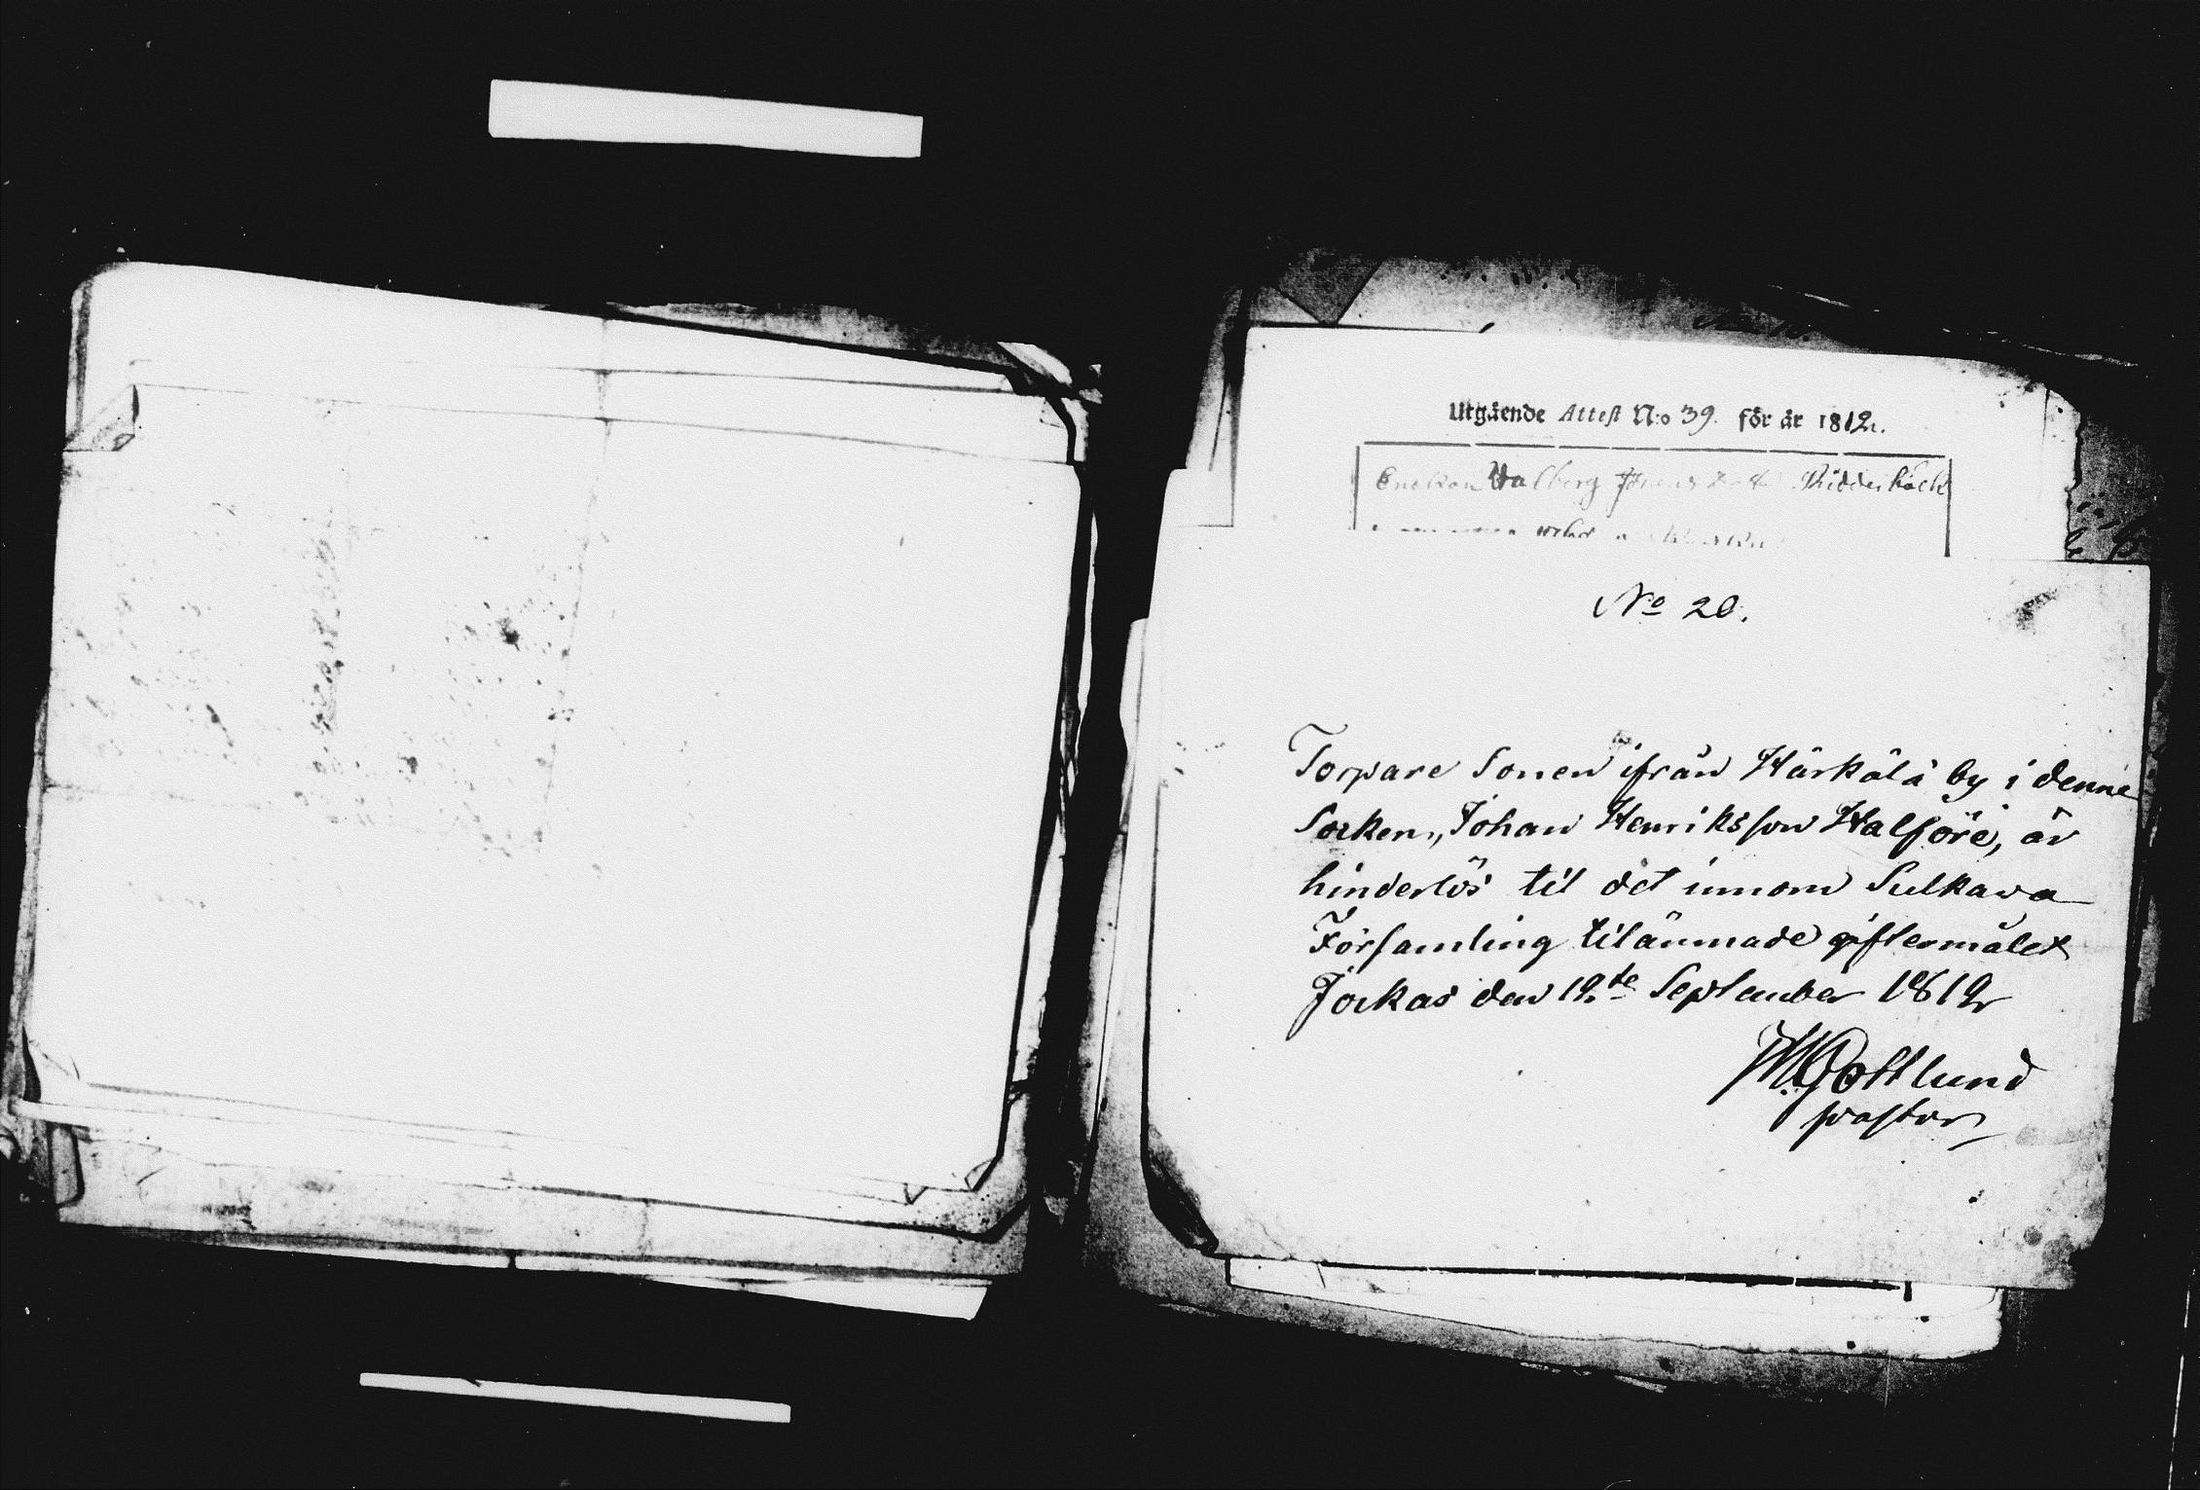 Utgående Attest N:o 39. för år 1812.
Walberg Ridderbäck
No 20.
Torpare Sonen ifrån Härkälä by i denne
Socken, Johan Henriksson Halföre, är
hinderlös til det innom Sulkava
Församling tilämnade giftermålet
Jockas den 12te September 1812
Gottlund
pastor